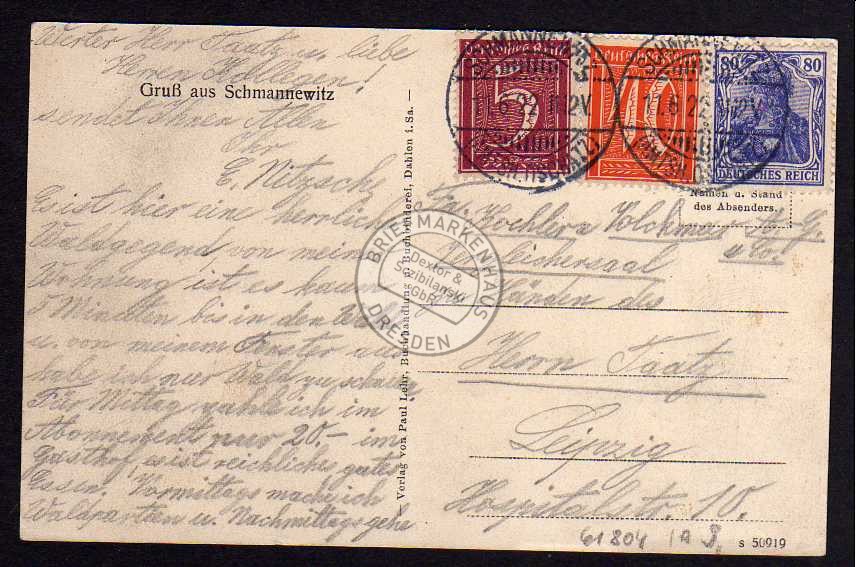 Werter Herr Taatz u. liebe
Herren Kollegen!
Gruß aus Schmannewitz
sendet Ihnen Allen
Ihr
E. Nitzsch
Es ist hier eine herrliche
Waldgegend, von meiner
Wohnung ist es kaum
5 Minuten bis in den Wald
u. von meinem Fenster aus
habe ich nur Wald zu schauen
Für Mittag zahle ich im
Abonnement nur 20.- im
Gasthof, es ist reichliches gutes
Essen. Vormittags mache ich
Waldpartien u. Nachmittags gehe
— Verlag von Paul Lehr, Buchhandlung u. Buchbinderei, Dahlen i. Sa. —
Deutsches Reich
5
Deutsches Reich
10
80 80
DEUTSCHES REICH
11.6.22
11.6.22
Namen u. Stand
des Absenders.
Fa. Koehler & Volckmar A. G.
u. Co.
Händen des
Herrn Taatz
Leipzig
Hospitalstr. 10.
61804
s 50919
BRIEFMARKENHAUS
Dextor &
Sczibilanski
GbR
DRESDEN